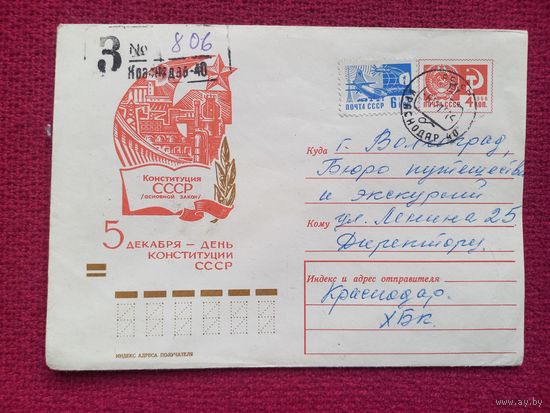 З № 806
Краснодар-40
ПОЧТА СССР 6
ПОЧТА СССР 4 КОП.
КРАСНОДАР 40
Конституция
СССР
/ОСНОВНОЙ ЗАКОН/
5 ДЕКАБРЯ – ДЕНЬ
КОНСТИТУЦИИ
СССР
Куда г. Волгоград,
Бюро путешеств
и экскурсий
Кому ул. Ленина 25
Директору.
Индекс и адрес отправителя
Краснодар.
ХБК.
ИНДЕКС АДРЕСА ПОЛУЧАТЕЛЯ
www.ay.by